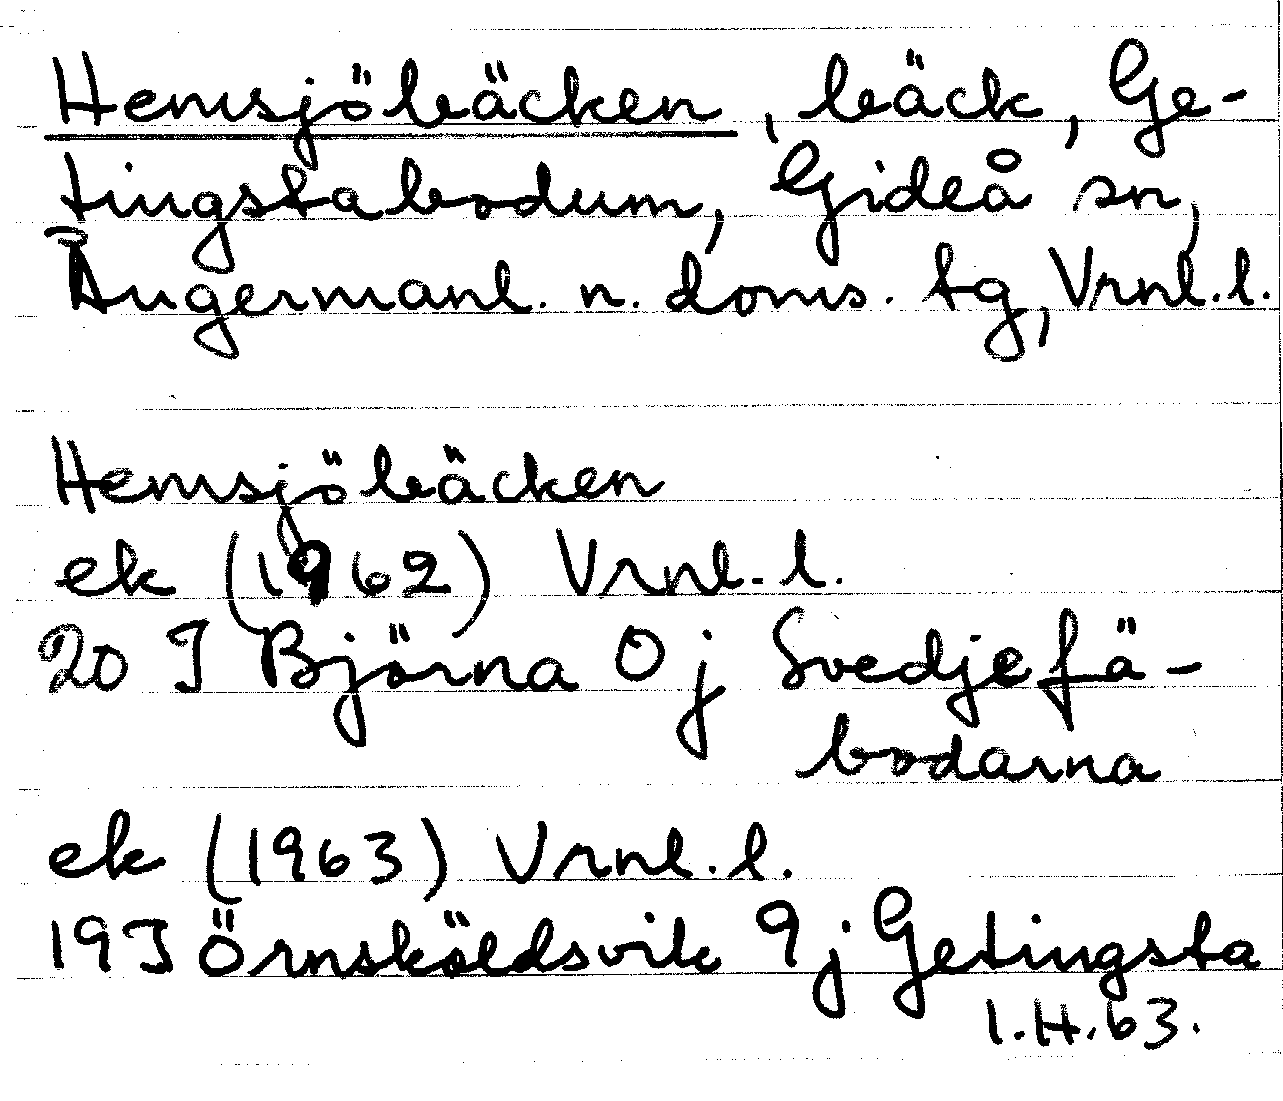 Hemsjöbäcken, bäck, Ge-
tingstabodum, Gideå sn,
Ångermanl. n. doms. tg, Vrnl. l.
Hemsjöbäcken
ek (1962) Vrnl. l.
20 J Björna 0 j Svedjefä-
bodarna
ek (1963) Vrnl. l.
19 J Örnsköldsvik 9 j Getingsta
I.H.63.